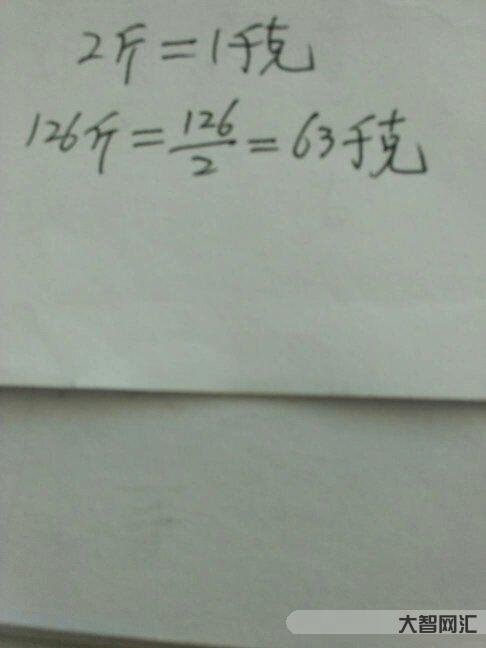 2斤=1千克
126斤=126/2=63千克
大智网汇